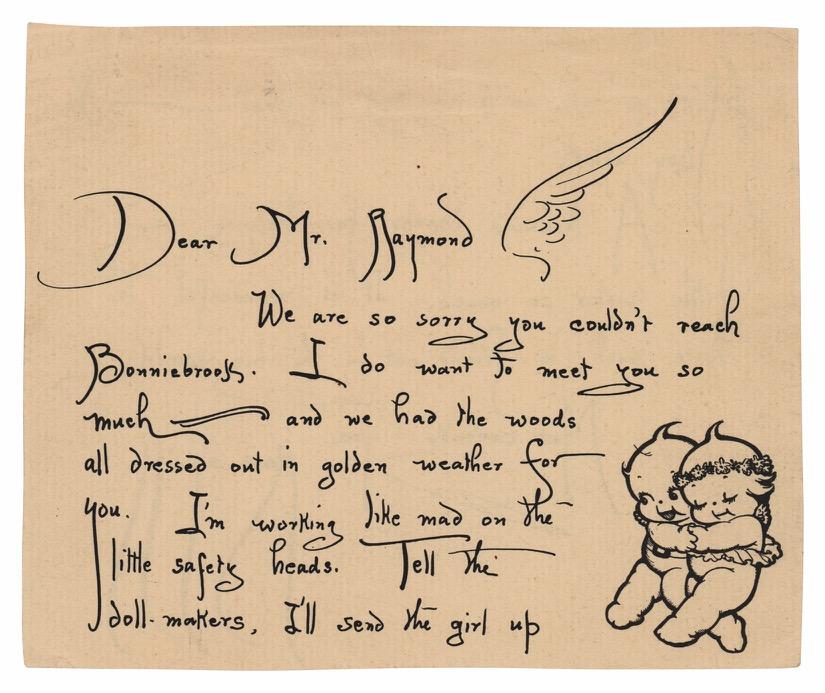 Dear Mr. Raymond
We are so sorry you couldn't reach
Bonniebrook. I do want to meet you so
much — and we had the woods
all dressed out in golden weather for
you. I'm working like mad on the
little safety heads. Tell the
doll-makers, I'll send the girl up